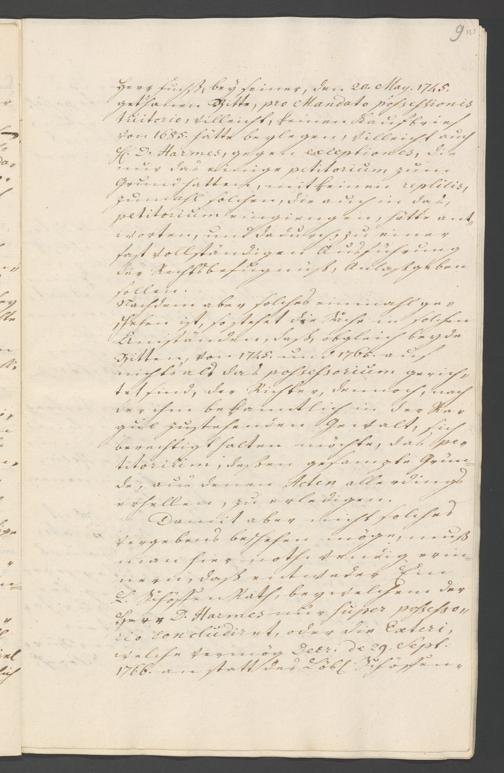 9
Herr Fuchß, bey seiner, den 20. May. 1745.
gethanen Bitte, pro Mandato possessionis
tuitorio, vielleicht, keinen Kauffbrief
von 1685. hätte beylegen, vielleicht auch
H. D. Harmes, gegen exceptiones, die
nur das einige petitorium zum
Grund hatten, mit keinen replicis,
zumahl solchen, die auch in das
petitorium eingiengen, hätte ant„
worten, und dadurch zu einer
fast vollständigen Ausführung
der Rechtsbefugniß, Anlaß geben
sollen.
Nachdem aber solches einmahl ge„
schehen ist, so stehet die Sache in solchen
Umständen, daß, obgleich beyde
Bitten, von 1745. und 1766. auf
nichts als das possessorium gerich„
tet sind, der Richter, dennoch, nach
der ihm bekanntlich in der Re„
gul zustehenden Gewalt, sich
berechtigt halten möchte, das pe„
titorium, dessen gesampte Grün„
de, aus denen Acten allerdings
erhellen, zu erledigen.
Damit aber nicht solches
vergebens geschehen möge, muß
man hier nothwendig erin„
nern, daß entweder Ein
L. Schöffen Rath, bey welchem der
Herr D. Harmes nur super possesso„
rio concludiret, oder die Exteri,
welche vermög Decr. de 29. Sept.
1766. an statt des Löbl. Schöffen„